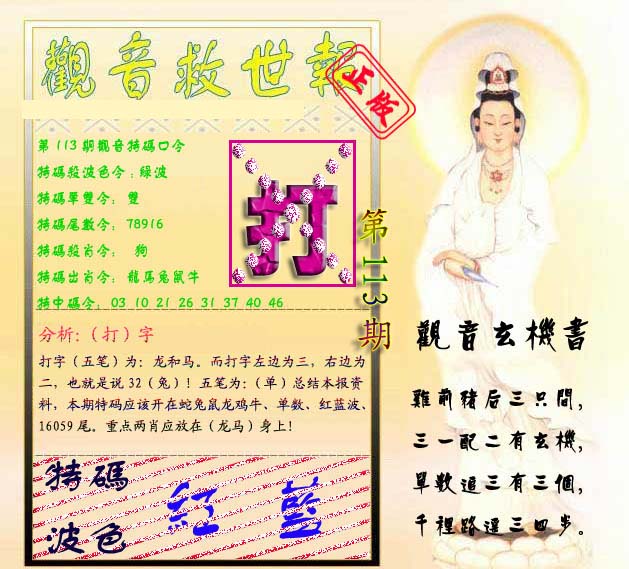 觀音救世報
正版
第113期觀音特碼口令
特碼殺波色令:綠波
特碼單雙令: 雙
特碼尾數令: 78916
特碼殺肖令: 狗
特碼出肖令: 龍馬兔鼠牛
特中碼令: 03 10 21 26 31 37 40 46
打
第113期
分析:（打）字
打字（五笔）为：龙和马。而打字左边为三，右边为
二，也就是说 32（兔）！五笔为：（单）总结本报资
料，本期特码应该开在蛇兔鼠龙鸡牛、单数、红蓝波、
16059 尾。重点两肖应放在（龙马）身上！
特碼
波色
紅 藍
觀音玄機書
雞前豬后三只間，
三一配二有玄機，
單數逍三有三個，
千裡路遥三四步。